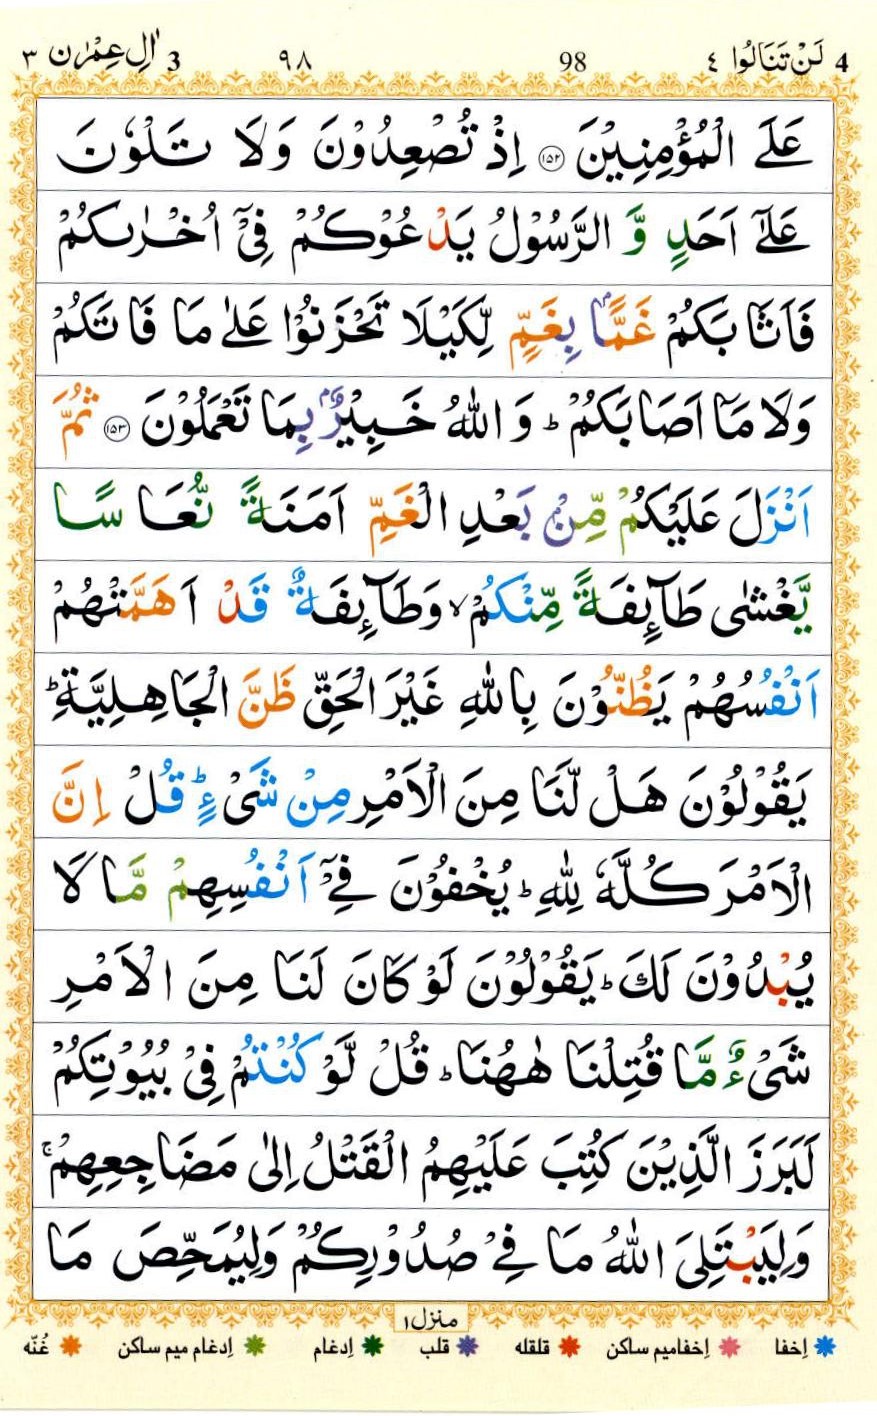 4 لَنْ تَنَالُوا ٤ 98 ٩٨ 3 اٰلِ عِمْرٰن ٣
عَلَى الْمُؤْمِنِيْنَ ۝١٥٢ اِذْ تُصْعِدُوْنَ وَلَا تَلْوٗنَ
عَلٰٓى اَحَدٍ وَّ الرَّسُوْلُ يَدْعُوْكُمْ فِىْٓ اُخْرٰىكُمْ
فَاَثَابَكُمْ غَمًّاۢ بِغَمٍّ لِّكَيْلَا تَحْزَنُوْا عَلٰى مَا فَاتَكُمْ
وَلَا مَاۤ اَصَابَكُمْ ؕ وَ اللّٰهُ خَبِيْرٌۢ بِمَا تَعْمَلُوْنَ ۝١٥٣ ثُمَّ
اَنْزَلَ عَلَيْكُمْ مِّنْۢ بَعْدِ الْغَمِّ اَمَنَةً نُّعَاسًا
يَّغْشٰى طَآئِفَةً مِّنْكُمْ ۙ وَطَآئِفَةٌ قَدْ اَهَمَّتْهُمْ
اَنْفُسُهُمْ يَظُنُّوْنَ بِاللّٰهِ غَيْرَ الْحَقِّ ظَنَّ الْجَاهِلِيَّةِ ؕ
يَقُوْلُوْنَ هَلْ لَّنَا مِنَ الْاَمْرِ مِنْ شَىْءٍ ؕ قُلْ اِنَّ
الْاَمْرَ كُلَّهٗ لِلّٰهِ ؕ يُخْفُوْنَ فِىْٓ اَنْفُسِهِمْ مَّا لَا
يُبْدُوْنَ لَكَ ؕ يَقُوْلُوْنَ لَوْ كَانَ لَنَا مِنَ الْاَمْرِ
شَىْءٌ مَّا قُتِلْنَا هٰهُنَا ؕ قُلْ لَّوْ كُنْتُمْ فِىْ بُيُوْتِكُمْ
لَبَرَزَ الَّذِيْنَ كُتِبَ عَلَيْهِمُ الْقَتْلُ اِلٰى مَضَاجِعِهِمْ ۚ
وَلِيَبْتَلِىَ اللّٰهُ مَا فِىْ صُدُوْرِكُمْ وَلِيُمَحِّصَ مَا
منزل ١
اِخفا اِخفامیم ساکن قلقله قلب اِدغام اِدغام میم ساکن غُنّه